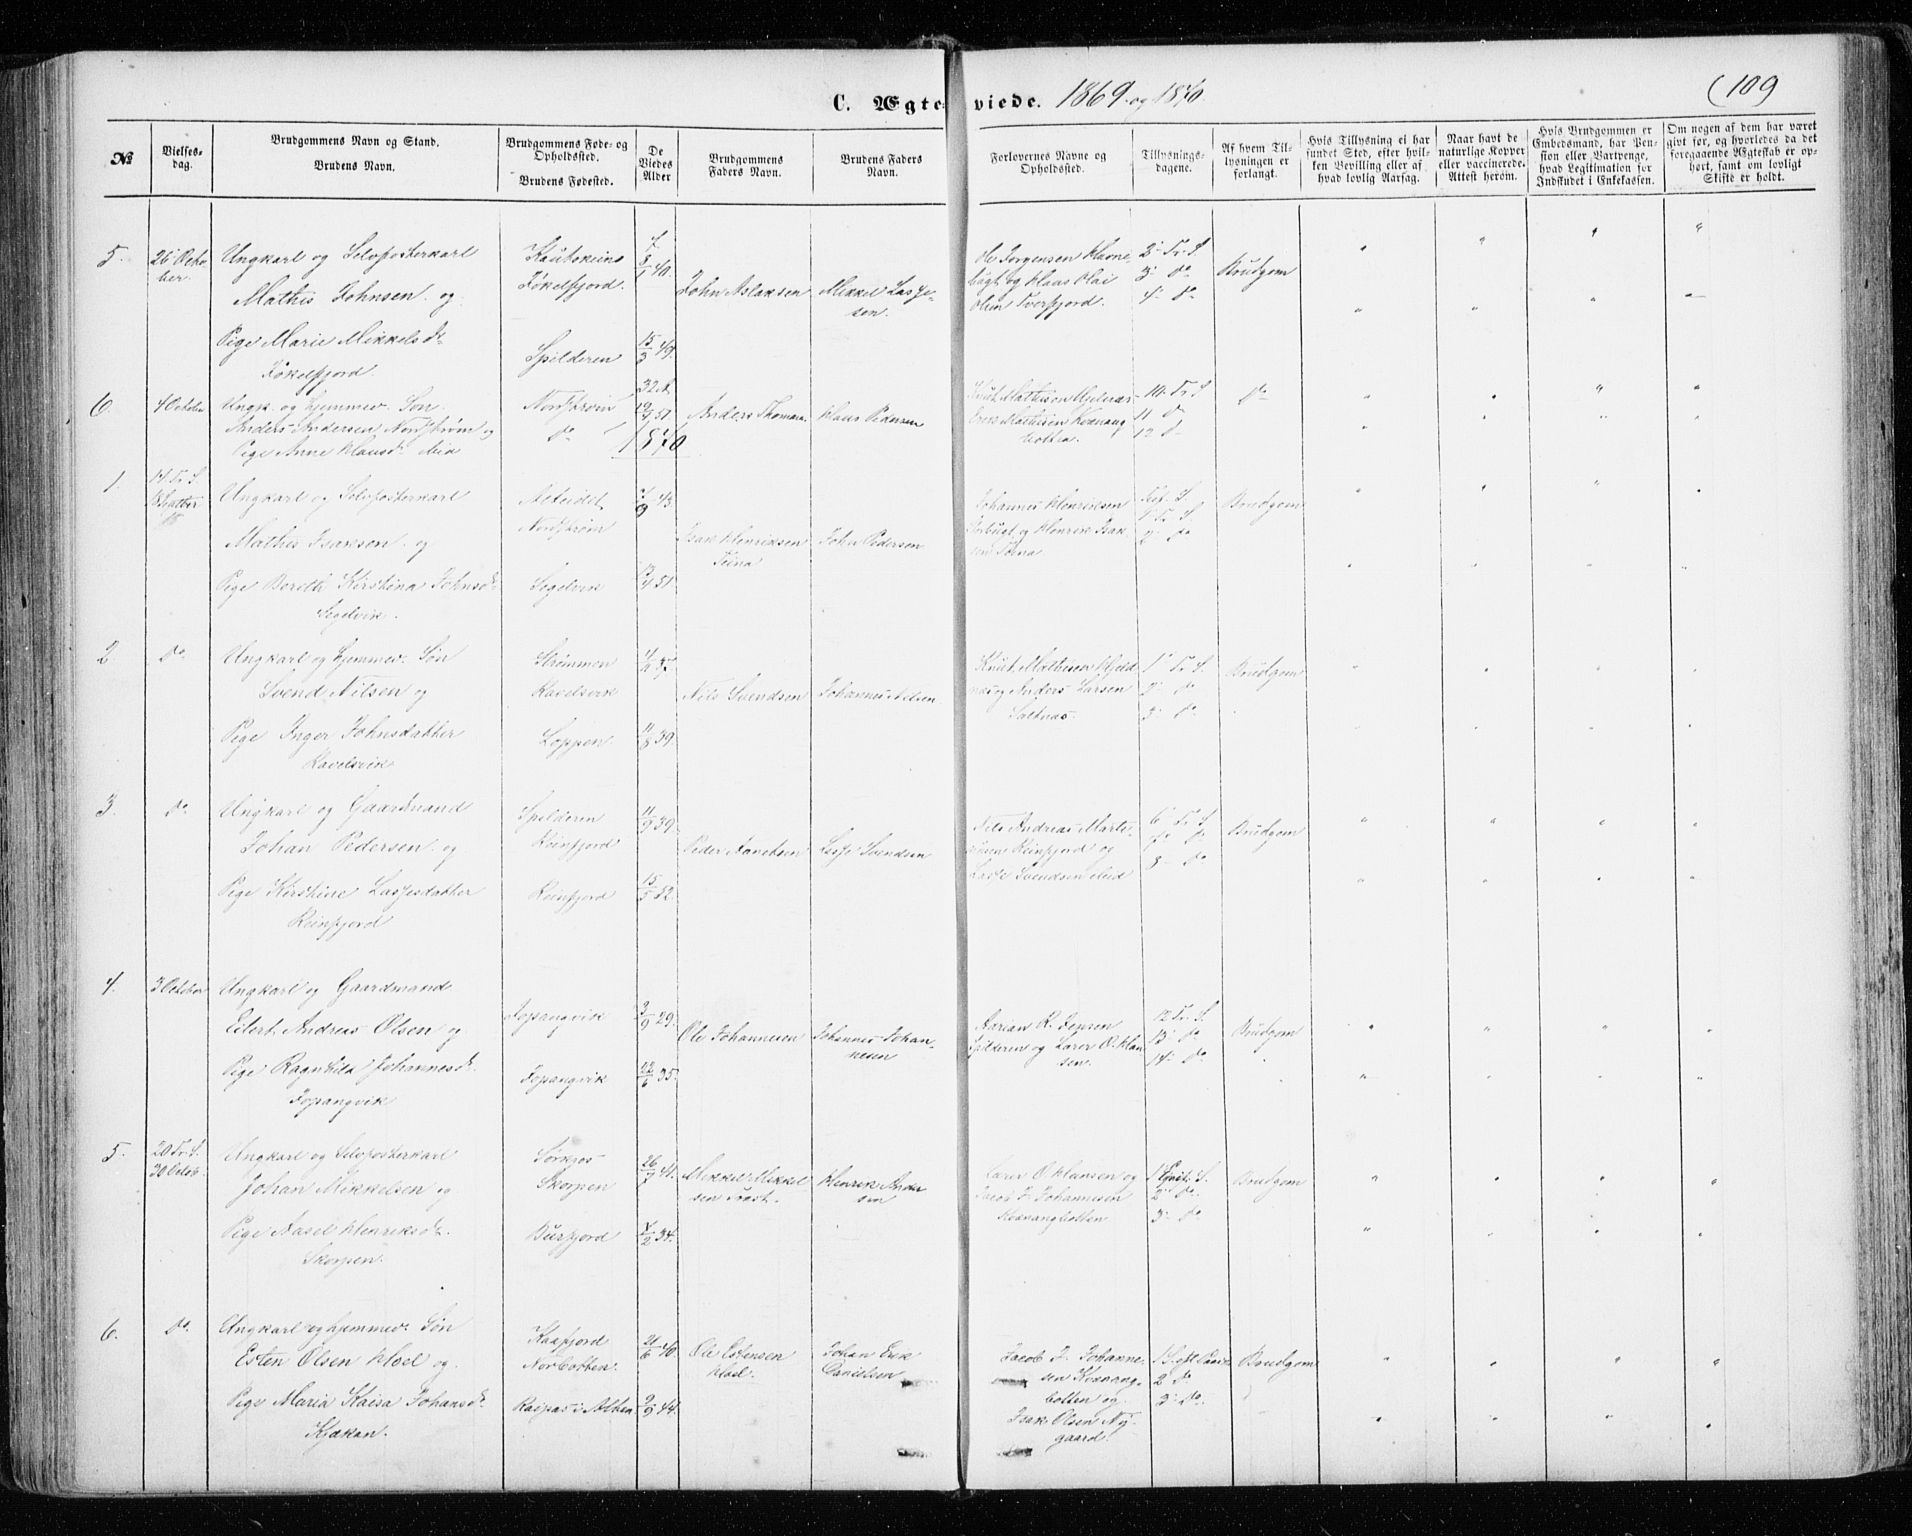 C. Ægte-viede. 1869 og 1870.
(109
No
Vielses-
dag.
Brudgommens Navn og Stand.
Brudens Navn.
Brudgommens Føde- og
Opholdssted.
Brudens Fødested.
De
Viedes
Alder
Brudgommens
Faders Navn.
Brudens Faders
Navn.
Forlovernes Navne og
Opholdssted.
Tillysnings-
dagene.
Af hvem Til-
lysningen er
forlangt.
Hvis Tillysning ei har
fundet Sted, efter hvil-
ken Bevilling eller af
hvad lovlig Aarsag.
Naar havt de
naturlige Kopper
eller vaccinerede.
Attest herom.
Hvis Brudgommen er
Embedsmand, har Pen-
sion eller Vartpenge,
hvad Legitimation for
Indskudet i Enkekassen.
Om nogen af dem har været
gift før, og hvorledes da det
foregaaende Ægteskab er op-
hørt, samt om lovligt
Skifte er holdt.
5. 26 Octo-
ber.
Ungkarl og Selvfosterkarl
Mathis Johnsen og
Pige Marie Mikkelsd.
Jøkelfjord.
Kautokeino
Jøkelfjord.
Spilderen
15/3 49.
John Aslaksen
Mikkel Lasse-
sen.
Ole Jørgensen
og Hans Olai
Olsen Tverfjord.
2 Tr. S.
3 Do
4 Do
Brudgom
6. 4 October
Ungk. og hjemmev. Søn
Anders Andersen Nordstrøm og
Pige Anne Hausd.
Nordstrøm
Do
1870
Anders Thomasen
Klaus Pedersen
Knut Mathisen
Erik Mathisen Kvænang-
botten.
10. Tr. S.
11 Do
12 D
Do
1. 14 Tr. S.
Ungkarl og Selvfosterkarl
Mathis Isaksen og
Pige Berith Kirstina Johnsd.
Segelvik.
Alteidet
Nordstrøm
Segelvik
43
51.
Isak Henriksen
John Pedersen
Johannes Henriksen
og Henrik Isak-
sen
1 Tr. S.
2 Do
Brudgom
2. Do
Ungkarl og hjemmev. Søn
Svend Nilsen og
Pige Inger Johnsdatter
Ravelsvik
Strømmen
Ravelsvik
Loppen.
11/8 39.
Nils Svendsen
Johannes Nilsen
Knut Mathisen Hjeld-
næs og Anders Larsen
Saltnæs.
1 Tr. S.
2 Do
3 Do
Brudgom
3. Do
Ungkarl og Gaardmand
Johan Pedersen og
Pige Kirstine Lassesdatter
Reinfjord
Spilderen
Reinfjord
Reinfjord
11/9 39.
15/5 52.
Peder
Lasse Svendsen
Nils Andreas Marti-
nusen Reinfjord og
Lasse Svendsen ibid
6 Tr. S.
7 Do
8 Do
Brudgom
4. 3 October
Ungkarl og Gaardmand
Eilert Andreas Olsen og
Pige Ragnhild Johannesd.
Jopangvik
Jopangvik
Jopangvik
3/9 29.
35.
Ole Johannesen
Johannes Johan-
nesen
Adrian R. Jensen
Spilderen og Larer O. Han-
sen.
12 Tr. S.
13 Do
14 Do
Brudgom
5. 20 Tr. S.
30 Octob.
Ungkarl og Selvfosterkarl
Johan Mikkelsen og
Pige Aasel Henriksd.
Skorpen.
Sørkjos
Skorpen
Burfjord
26/7 41.
1/2 34.
Mikkel Mikkel
sen Trast.
Henrik Ander
sen
Larer O. Hansen og
Jacob J. Johannesen
Kvænangbotten
2 Do
3 Do
Brudgom
6. Do
Ungkarl og hjemmev. Søn
Esten Olsen Hoel og
Pige Maria Kaisa Johansd.
Kjækan.
Kaafjord
Norbotten.
Raipas i Alten
21/6 40.
9/9 44.
Ole Estensen
Hoel.
Johan Erik
Danielsen
Jacob J. Johanne-
sen Kvænang-
botten og
Isak Olsen Ny-
gaard.
2 Do
3 Do
Brudgom